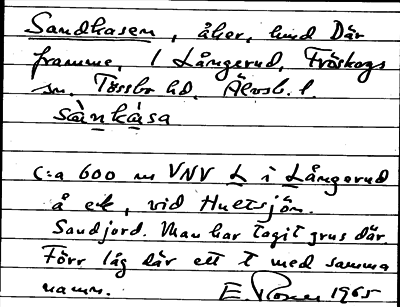 Sandkasen, åker, hmd Där
framme, 1 Långerud, Fröskogs
sn. Tössbo hd. Älvsb. l.
sànkàsa
C:a 600 m VNV L i Långerud
å ek, vid Hultsjön.
Sandjord. Man har tagit grus där.
Förr låg där ett t med samma
namn. E. 1965